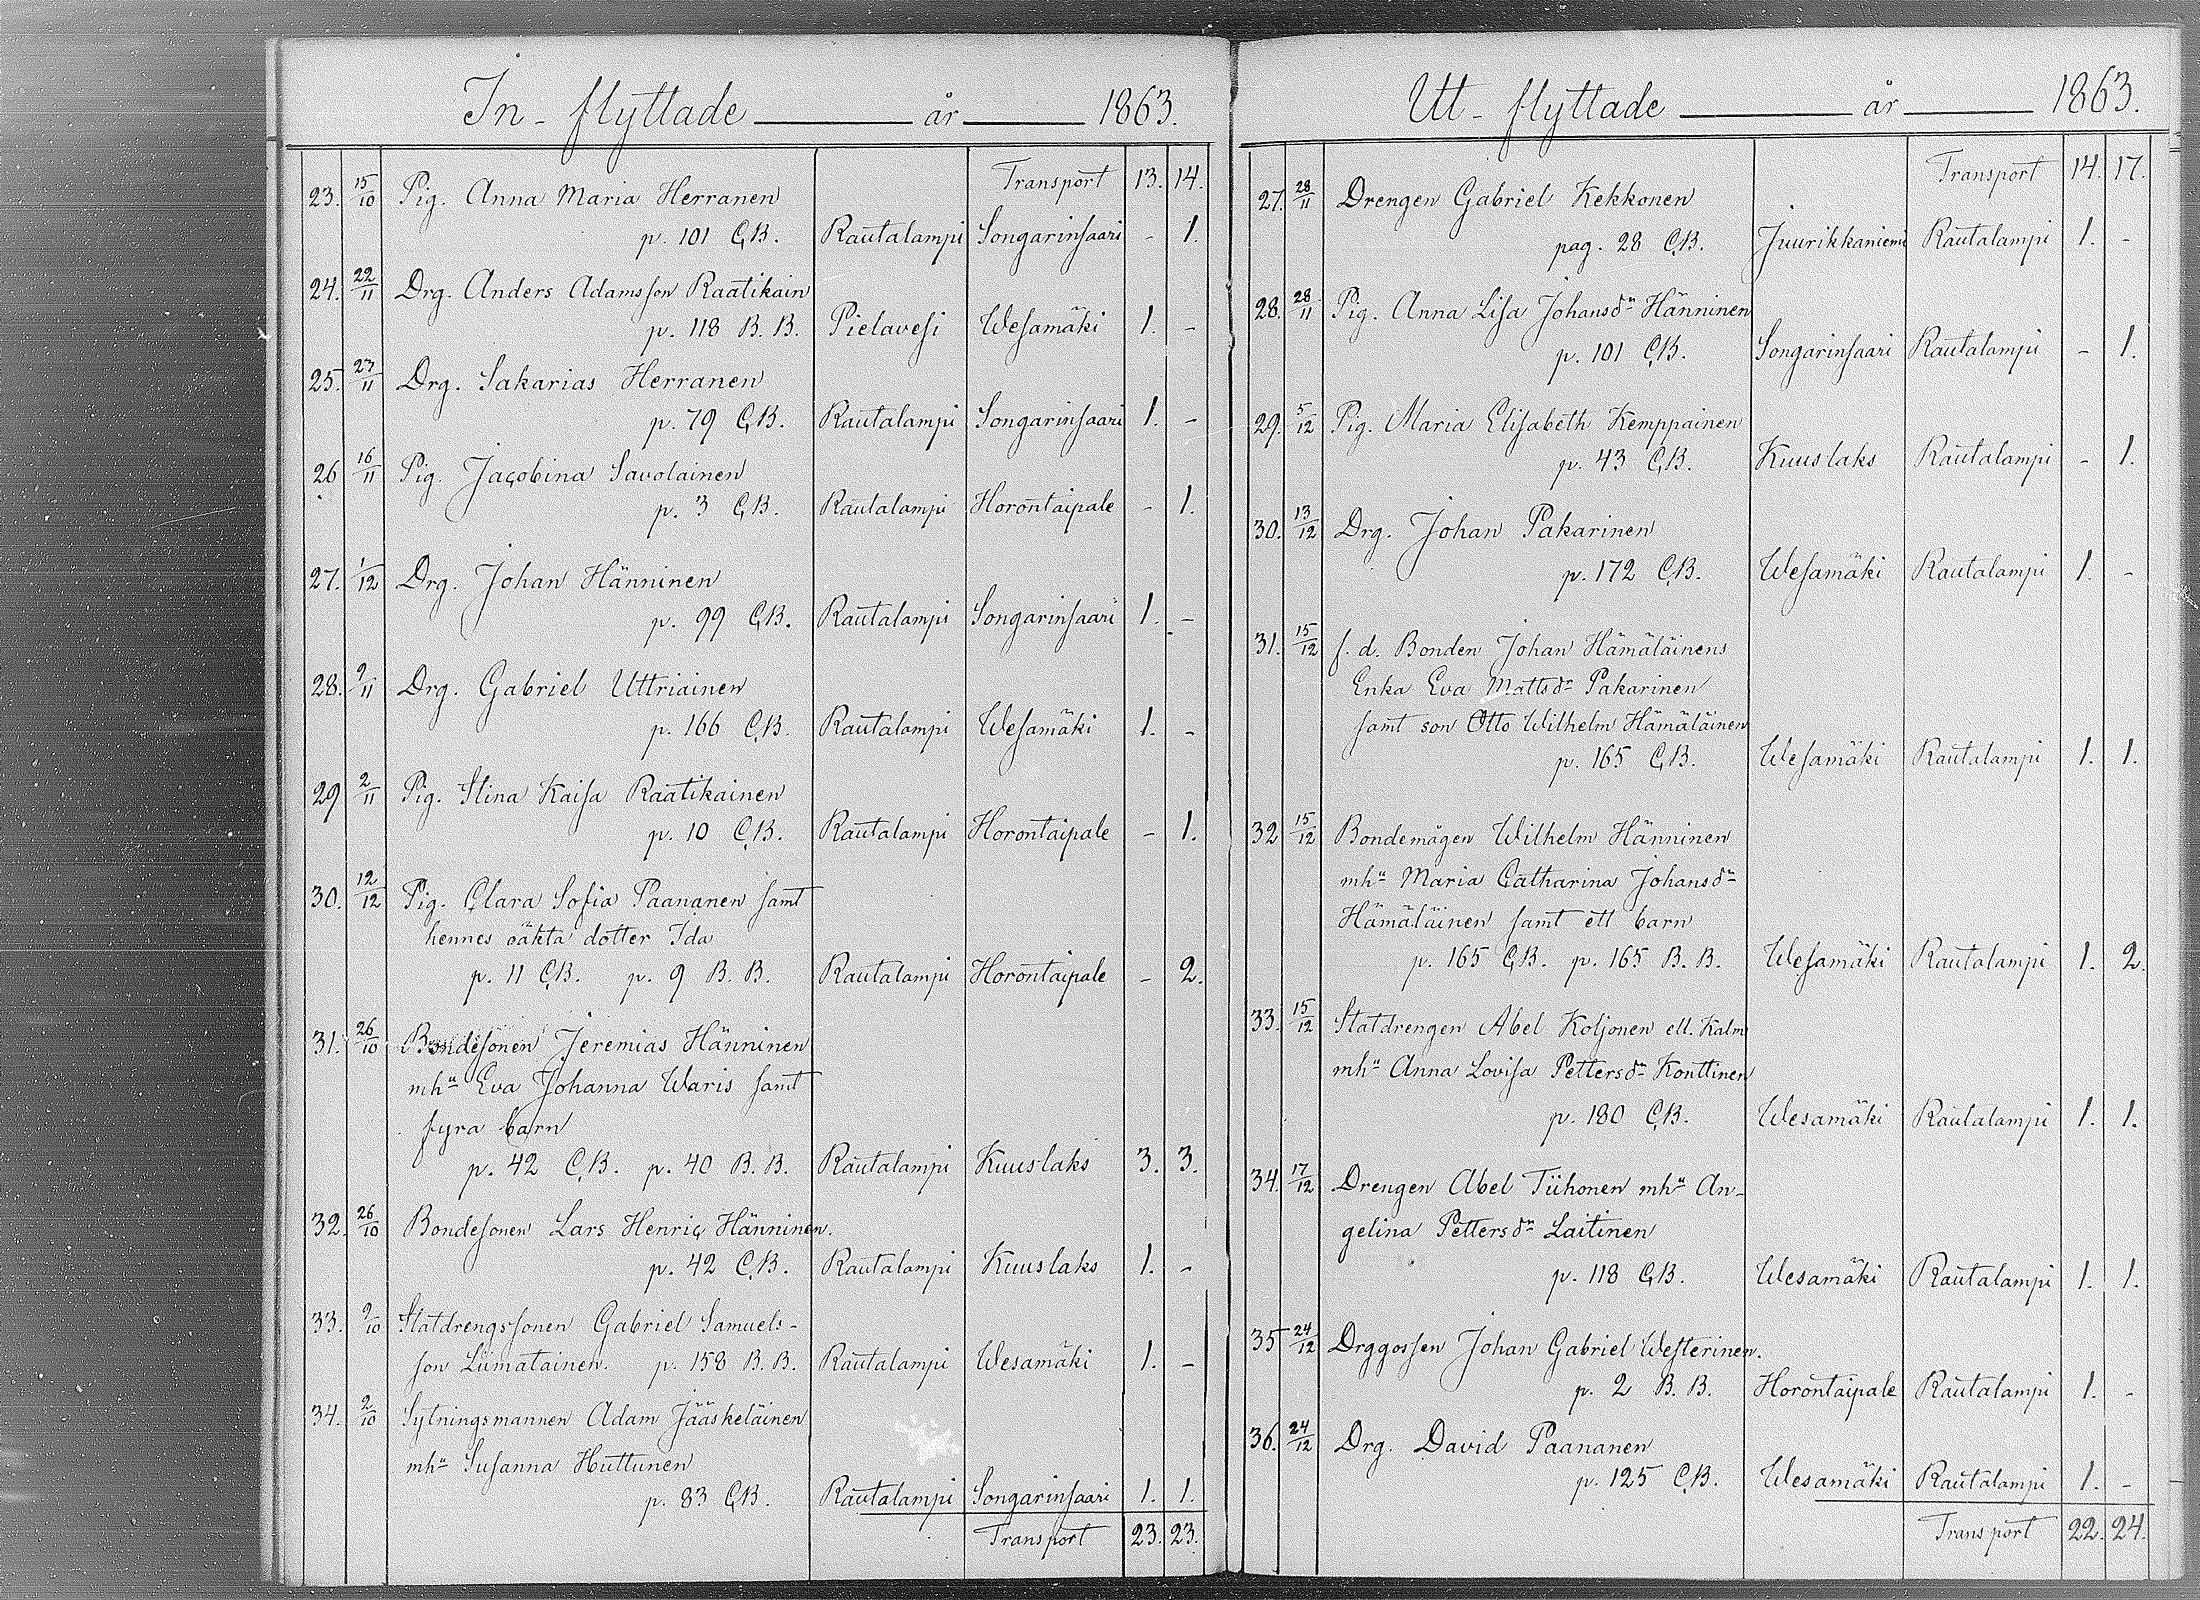 In-flyttade år 1863.
Transport 13. 14.
23. 15/10 Pig. Anna Maria Herranen
p. 101 C.B. Rautalampi Songarinsaari - 1.
24. 22/11 Drg. Anders Adamsson Raatikain
p. 118 B.B. Pielavesi Wesamäki 1. -
25. 23/11 Drg. Sakarias Herranen
p. 79 C.B. Rautalampi Songarinsaari 1. -
26 16/11 Pig. Jacobina Savolainen
p. 3 C.B. Rautalampi Horontaipale - 1.
27. 1/12 Drg. Johan Hänninen
p. 99 C.B. Rautalampi Songarinsaari 1. -
28. 9/11 Drg. Gabriel Uttriainen
p. 166 C.B. Rautalampi Wesamäki 1. -
29 2/11 Pig. Stina Kaisa Raatikainen
p. 10 C.B. Rautalampi Horontaipale - 1.
30. 12/12 Pig. Clara Sofia Paananen samt
hennes oäkta dotter Ida
p. 11 C.B. p. 9 B.B. Rautalampi Horontaipale - 2.
31. 26/10 Bondesonen Jeremias Hänninen
mhu Eva Johanna Waris samt
fyra barn
p. 42 C.B. p. 40 B.B. Rautalampi Kuuslaks 3. 3.
32. 26/10 Bondesonen Lars Henric Hänninen.
p. 42 C.B. Rautalampi Kuuslaks 1. -
33. 9/10 Statdrengssonen Gabriel Samuels-
son Liimatainen. p. 158 B.B. Rautalampi Wesamäki 1. -
34. 2/10 Sytningsmannen Adam Jääskeläinen
mhu Susanna Huttunen
p. 83 C.B. Rautalampi Songarinsaari 1. 1.
Transport 23. 23.
Ut-flyttade år 1863.
Transport 14. 17.
27. 28/11 Drengen Gabriel Kekkonen
pag. 28 C.B. Juurikkaniemi Rautalampi 1. -
28. 28/11 Pig. Anna Lisa Johansdr Hänninen
p. 101 C.B. Songarinsaari Rautalampi - 1.
29. 5/12 Pig. Maria Elisabeth Kemppainen
p. 43 C.B. Kuuslaks Rautalampi - 1.
30. 13/12 Drg. Johan Pakarinen
p. 172 C.B. Wesamäki Rautalampi 1. -
31. 15/12 f.d. Bonden Johan Hämäläinens
Enka Eva Mattsdr Pakarinen
samt son Otto Wilhelm Hämäläinen
p. 165 C.B. Wesamäki Rautalampi 1. 1.
32 15/12 Bondemågen Wilhelm Hänninen
mhu Maria Catharina Johansdr
Hämäläinen samt ett barn
p. 165 C.B. p. 165 B.B. Wesamäki Rautalampi 1. 2.
33. 15/12 Statdrengen Abel Koljonen ell. Kalm
mhu Anna Lovisa Pettersdr Konttinen
p. 180 C.B. Wesamäki Rautalampi 1. 1.
34. 17/12 Drengen Abel Tiihonen mhu An-
gelina Pettersdr Laitinen
p. 118 C.B. Wesamäki Rautalampi 1. 1.
35 24/12 Drggossen Johan Gabriel Westerinen.
p. 2 B.B. Horontaipale Rautalampi 1. -
36. 24/12 Drg. David Paananen
p. 125 C.B. Wesamäki Rautalampi 1. -
Transport 22. 24.